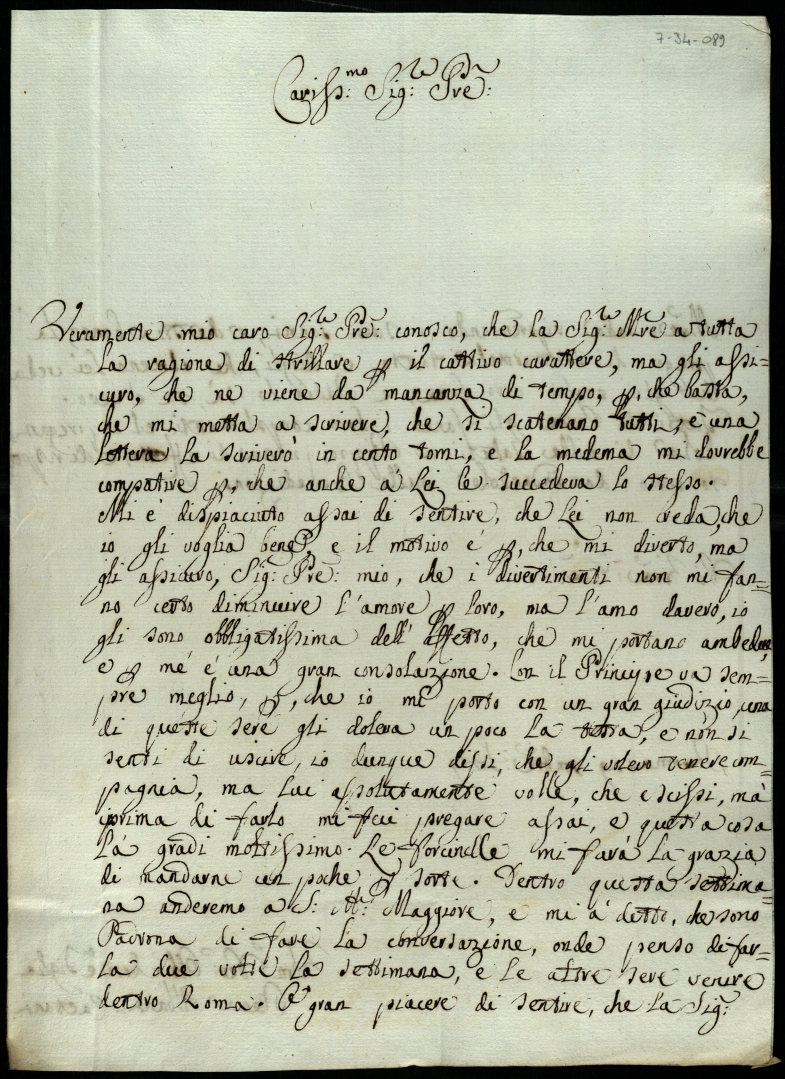 7-34-089
Cariss:mo Sig:re Pre:
Veramente mio caro Sig:re Pre: conosco, che la Sig:re Mre a tutta
la ragione di strillare p il cattivo carattere, ma gli assi-
curo, che ne viene da mancanza di tempo, p, che basta,
che mi metta a scrivere, che si scatenano tutti, e una
lettera la scriverò in cento tomi, e la medema mi dovrebbe
compatire p, che anche a Lei le succedeva lo stesso.
Mi e dispiaciuto assai di sentire, che Lei non creda, che
io gli voglia bene, e il motivo é p, che mi diverto, ma
gli assicuro, Sig: Pre: mio, che i divertimenti non mi fan=
no certo diminuire l'amore p loro, ma l'amo davero, io
gli sono obbligatissima dell'Affetto, che mi portano ambedue,
e p mé é una gran consolazione. Con il Principe va sem=
pre meglio, p, che io mi porto con un gran giudizio, una
di queste sere gli doleva un poco la testa, e non si
sentì di uscire, io dunque dissi, che gli volevo tenere com=
pagnia, ma lui assolutamente volle, che escissi, má
prima di farlo mi feci pregare assai, e questa cosa
lá gradì moltissimo. Le forcinelle mi fará la grazia
di mandarne un poche p sorte. Dentro questa settima=
na anderemo a S: Ma: Maggiore, e mi á detto, che sono
Padrona di fare la conversazione, onde penso di far=
la due volte la settimana, e le altre sere venire
dentro Roma. O gran piacere di sentire, che la Sig:ra